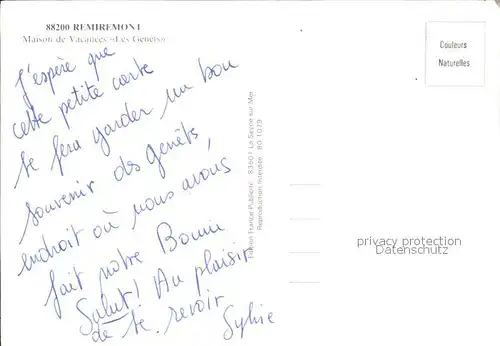 88200 REMIREMONT
Maison de Vacances «Les Genêts»
J'espère que
cette petite carte
te fera garder un bon
souvenir des genêts,
endroit où nous avons
fait notre Boum
Salut! Au plaisir
de te revoir
Sylvie
Couleurs
Naturelles
Edition France Publicité 83501 La Seyne sur Mer
Reproduction Interdite 80 1079
privacy protection
Datenschutz